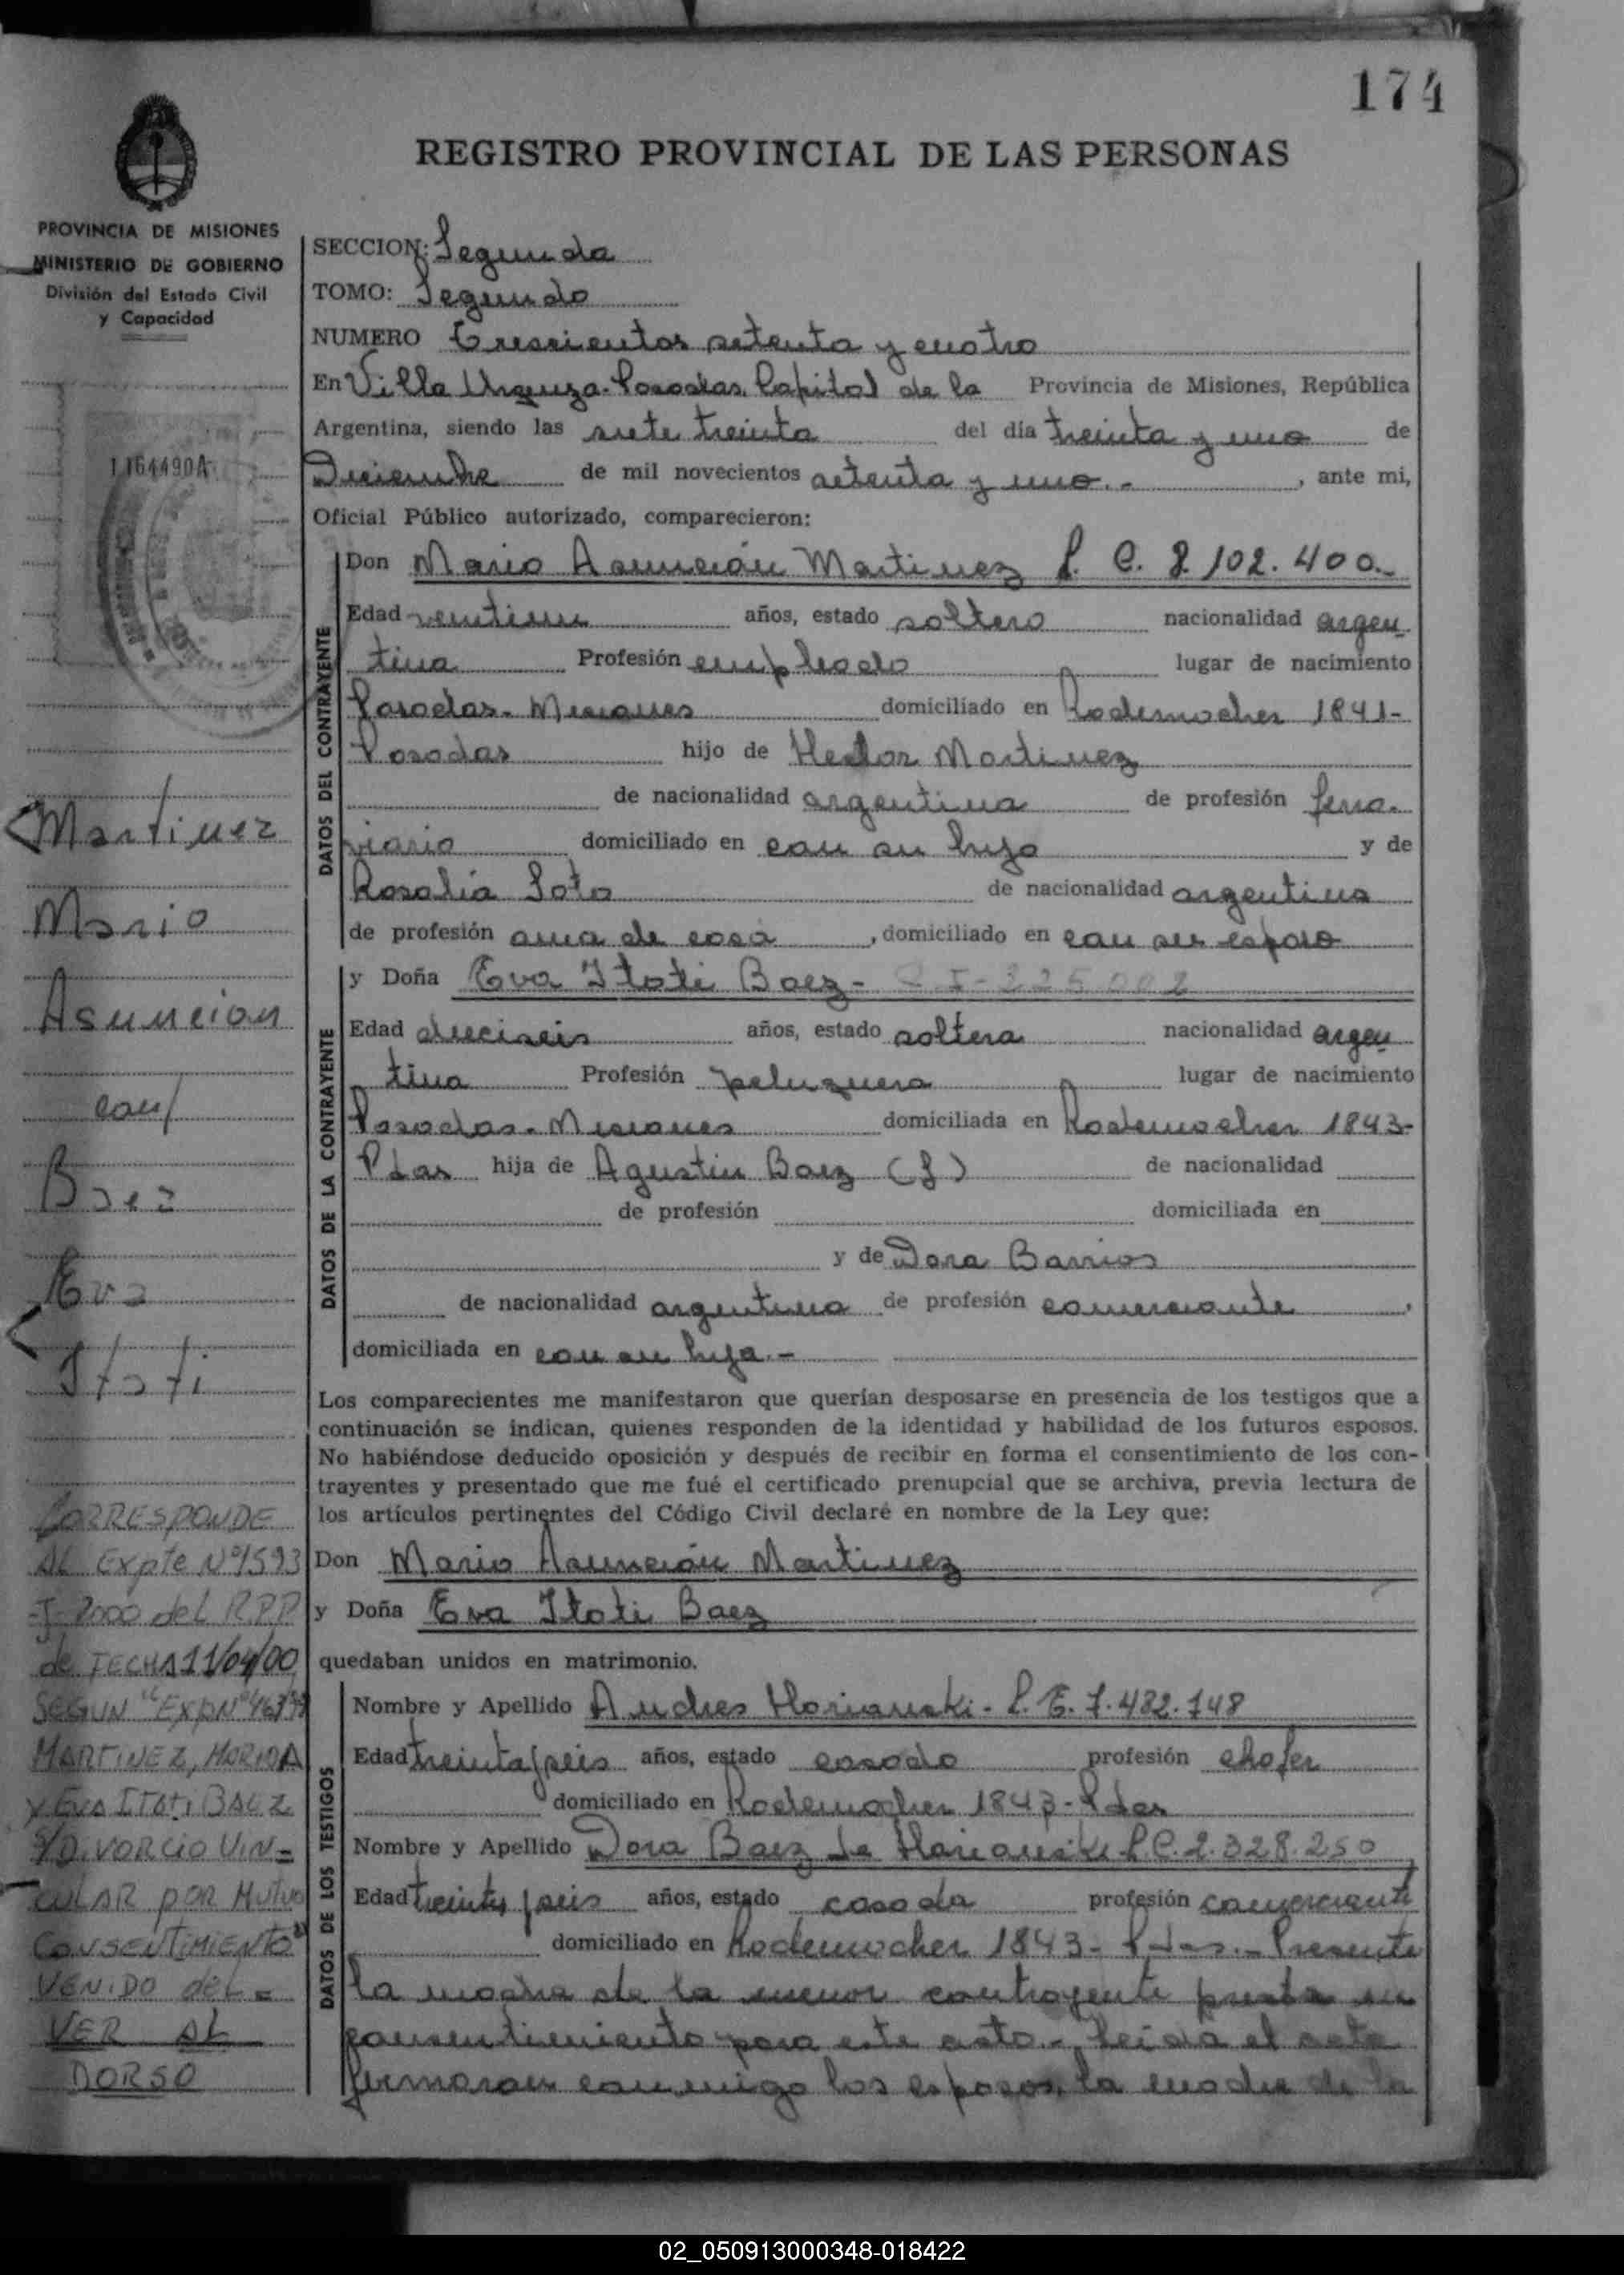 174
REGISTRO PROVINCIAL DE LAS PERSONAS
PROVINCIA DE MISIONES
MINISTERIO DE GOBIERNO
División del Estado Civil
y Capacidad
1164490A
Martinez
Mario
Asuncion
con/
Baez
Eva
Itati
CORRESPONDE
AL Expte Nº1593
-J-2000 del RPP
de FECHA 11/04/00
SEGUN "EXPNº463/99
MARTINEZ, MARIO A
Y EVA ITATI BAEZ
S/DIVORCIO VIN=
CULAR POR MUTUO
CONSENTIMIENTO"
VENIDO del =
VER AL
DORSO
SECCION: Segunda
TOMO: Segundo
NUMERO Trescientos setenta y cuatro
En Villa Urquiza. Posadas, Capital de la Provincia de Misiones, República
Argentina, siendo las siete treinta del día treinta y uno de
Diciembre de mil novecientos setenta y uno.- , ante mi,
Oficial Público autorizado, comparecieron:
DATOS DEL CONTRAYENTE
Don Mario Asunción Martinez L. E. 8.102.400.-
Edad veintiun años, estado soltero nacionalidad argen
tina Profesión empleado lugar de nacimiento
Posadas. Misiones domiciliado en Rademacher 1841-
Posadas hijo de Hector Martinez
de nacionalidad argentina de profesión ferro-
viario domiciliado en con su hijo y de
Rosalía Soto de nacionalidad argentina
de profesión ama de casa , domiciliado en con su esposo
DATOS DE LA CONTRAYENTE
y Doña Eva Itati Baez- C I - 225002
Edad dieciseis años, estado soltera nacionalidad argen
tina Profesión peluquera lugar de nacimiento
Posadas. Misiones domiciliada en Rademacher 1843-
Pdas hija de Agustin Baez (f) de nacionalidad
de profesión domiciliada en
y de Dora Barrios
de nacionalidad argentina de profesión comerciante ,
domiciliada en con su hija.-
Los comparecientes me manifestaron que querían desposarse en presencia de los testigos que a
continuación se indican, quienes responden de la identidad y habilidad de los futuros esposos.
No habiéndose deducido oposición y después de recibir en forma el consentimiento de los con-
trayentes y presentado que me fué el certificado prenupcial que se archiva, previa lectura de
los artículos pertinentes del Código Civil declaré en nombre de la Ley que:
Don Mario Asunción Martinez
y Doña Eva Itati Baez
quedaban unidos en matrimonio.
DATOS DE LOS TESTIGOS
Nombre y Apellido Andres Horianski - L. E. 7.482.748
Edad treinta/seis años, estado casado profesión chofer
domiciliado en Rademacher 1843- Pdas
Nombre y Apellido Dora Baez de Horianski L.C. 2.328.250
Edad treinta/seis años, estado casada profesión comerciante
domiciliado en Rademacher 1843- Pdas.- Presente
la madre de la menor contrayente presta su
consentimiento para este acto.- Leida el acta
firmaron conmigo los esposos, la madre de la
02_050913000348-018422